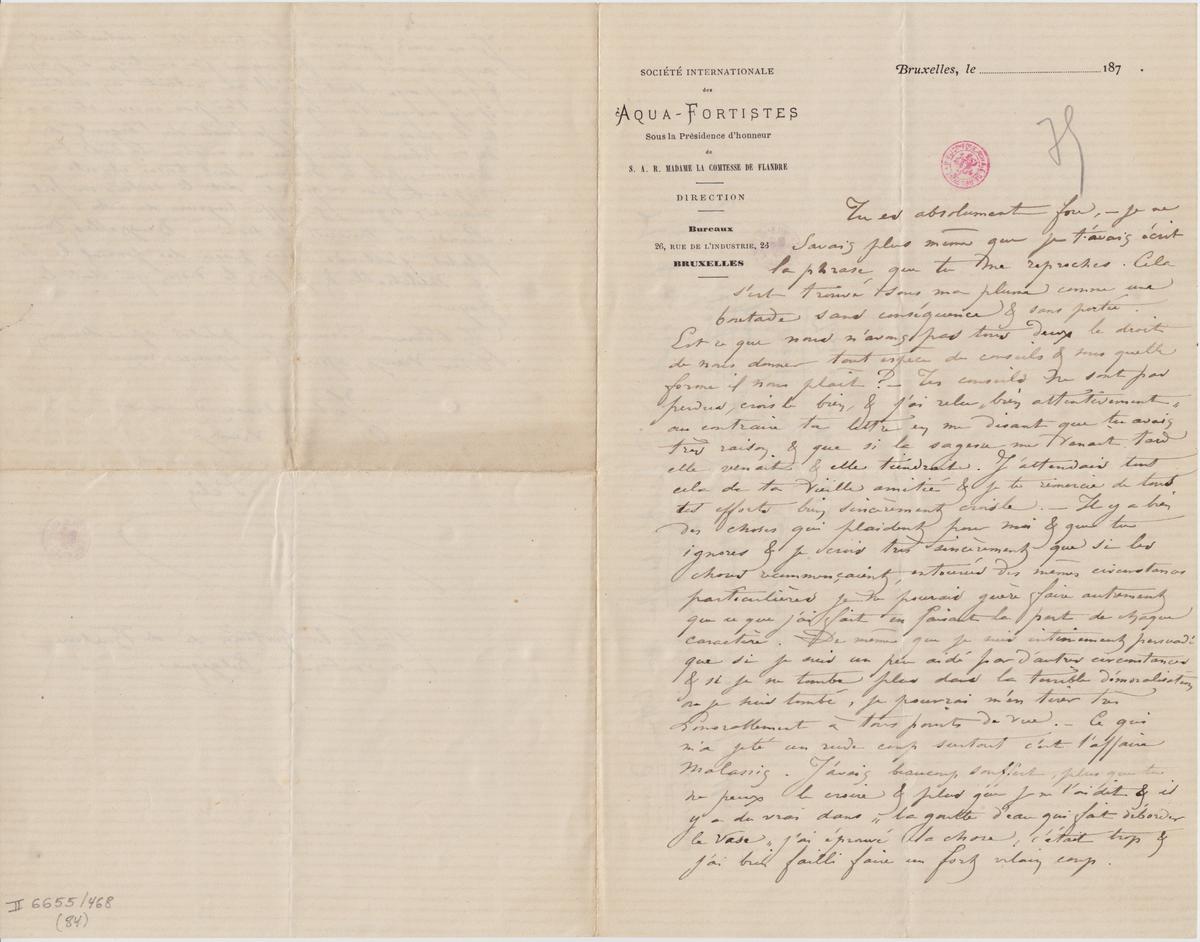 SOCIÉTÉ INTERNATIONALE
des
AQUA-FORTISTES
Sous la Présidence d'honneur
de
S. A. R. MADAME LA COMTESSE DE FLANDRE
DIRECTION
Bureaux
26, RUE DE L'INDUSTRIE, 26
BRUXELLES
Bruxelles, le 187 .
Tu es absolument fou, – je ne
savais plus même que je t'avais écrit
la phrase, que tu me reproches. Cela
s'est trouvé sous ma plume comme une
boutade sans conséquence & sans portée.
Est ce que nous n'avons pas tous deux le droit
de nous donner tout espèce de conseils & sous quelle
forme il nous plait ? – Tes conseils ne sont pas
perdus, crois le bien, & j'ai relu „bien attentivement"
au contraire ta lettre en me disant que tu avais
très raison, & que si la sagesse me venait tard
elle venait & elle tiendrait. J'attendais tout
cela de ta vieille amitié & je te remercie de tous
tes efforts bien sincèrement crois le. – Il y a bien
des choses qui plaident pour moi & que tu
ignores & je crois très sincèrement que si les
choses recommençaient, entourés des mêmes circonstances
particulières je ne pourrais guère faire autrement
que ce que j'ai fait en faisant la part de chaque
caractère. De même que je suis intimement persuadé
que si je suis un peu aidé par d'autres circonstances
& si je ne tombe plus dans la terrible démoralisation
où je suis tombé, je pourrai m'en tirer très
honorablement à tous points de vue. – Ce qui
m'a jeté un rude coup surtout c'est l'affaire
Malassis. J'avais beaucoup souffert, plus que tu
ne peux le croire & plus que je ne l'ai dit, & il
y a du vrai dans „ la goutte d'eau qui fait déborder
le vase „ j'ai éprouvé la chose, c'était trop &
j'ai bien failli faire un fort vilain coup.
II 6655/468
(84)